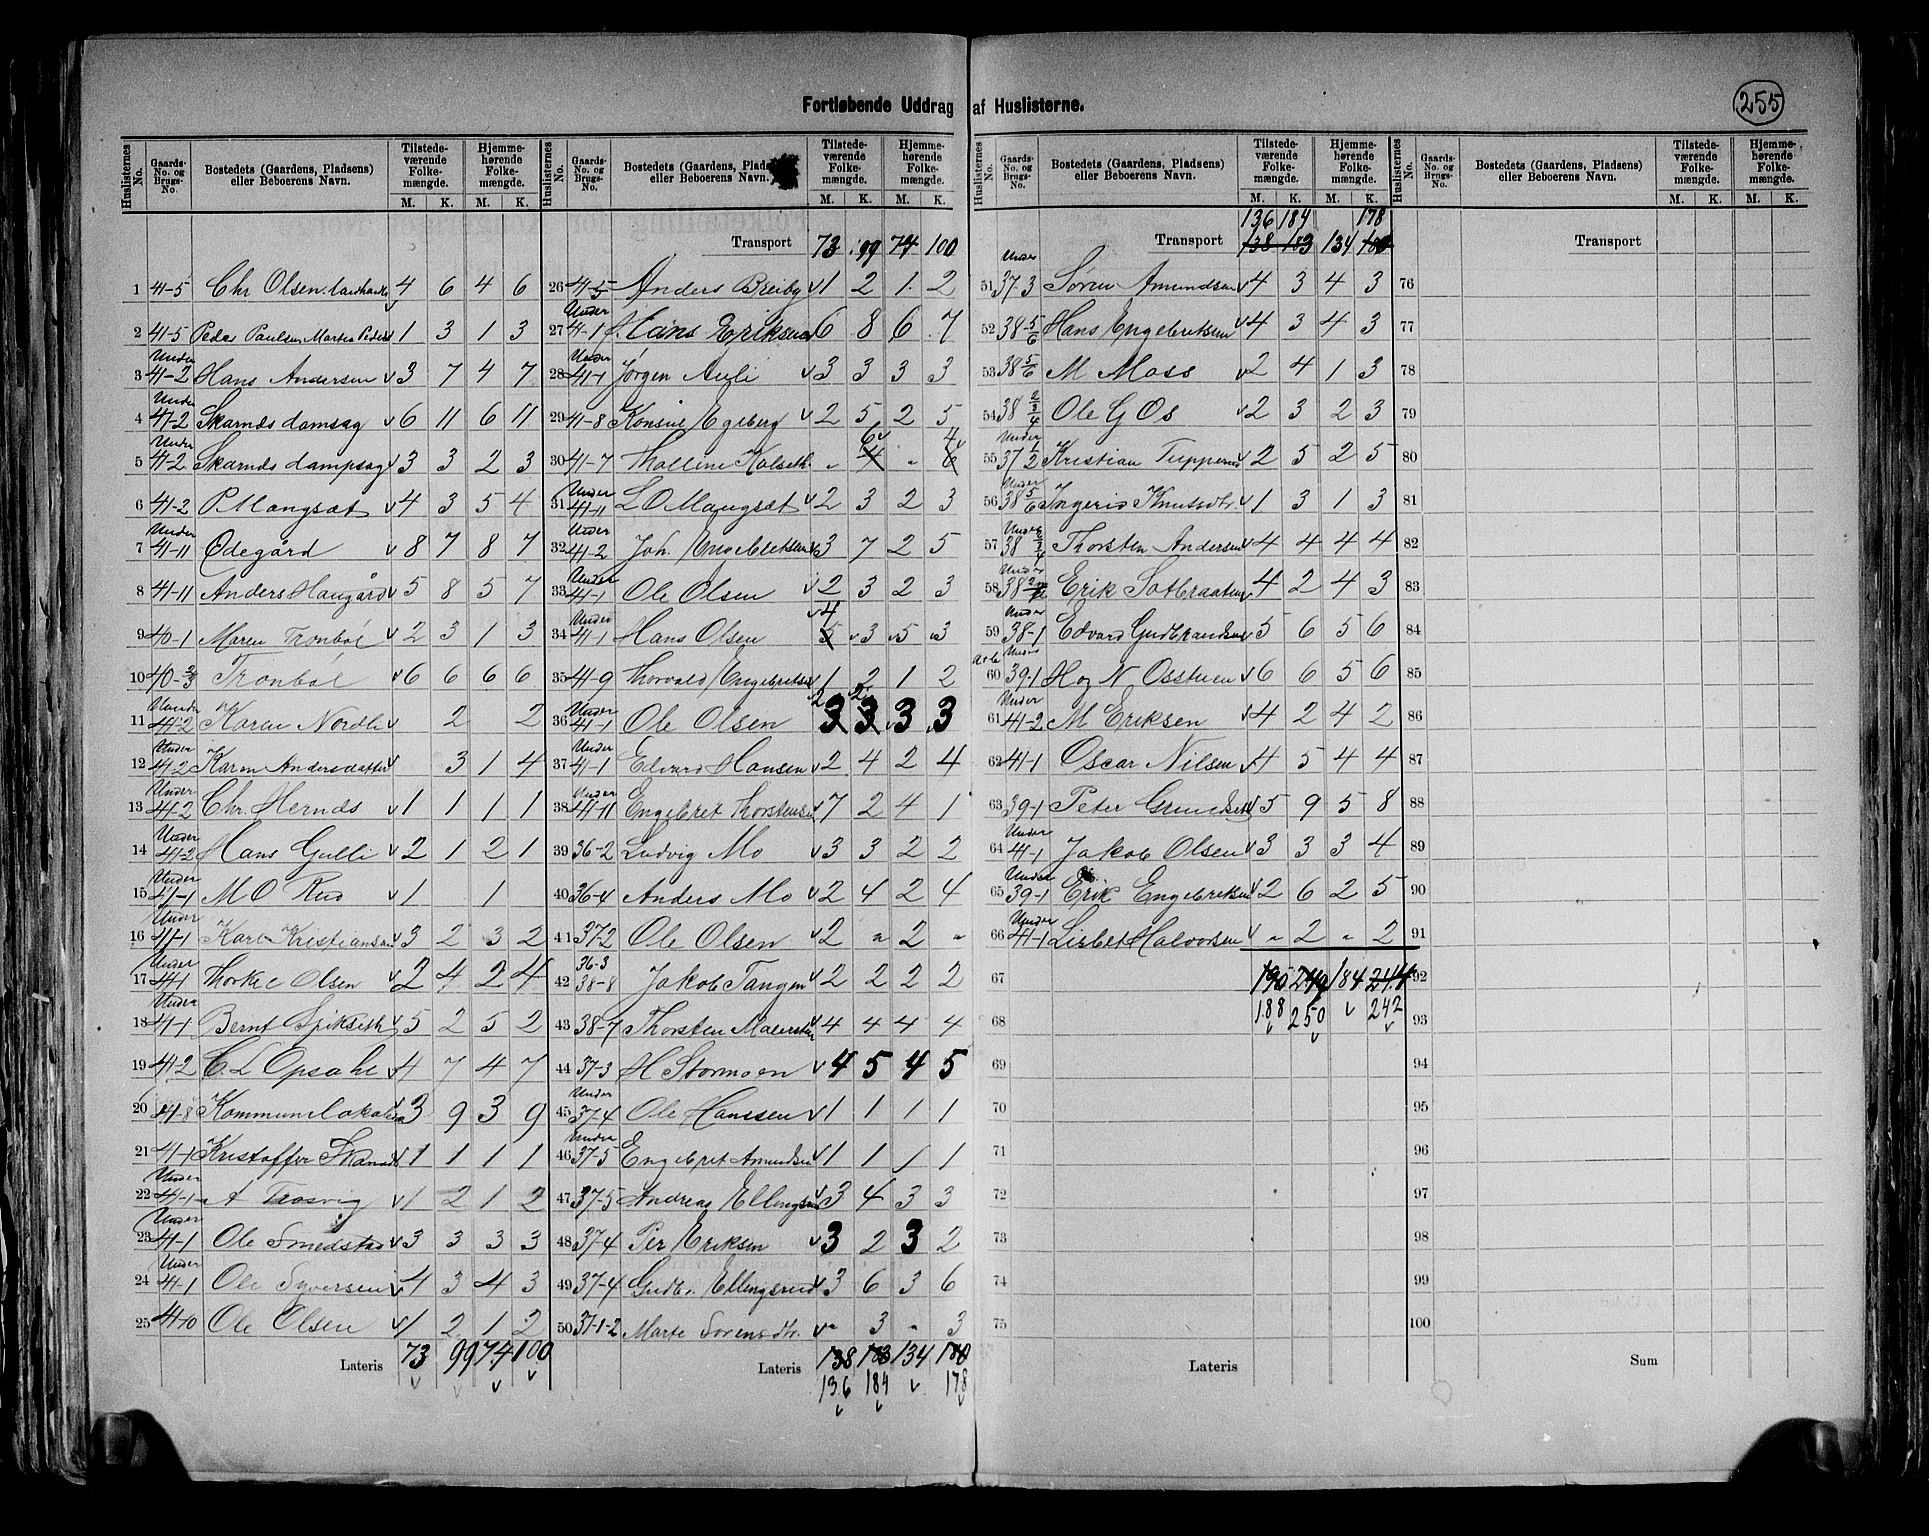 Fortløbende Uddrag af Huslisterne.
255
Huslisternes No. | Gaards- No. og Brugs- No. | Bostedets (Gaardens, Pladsens) eller Beboerens Navn. | Tilstede- værende Folke- mængde. M. K. | Hjemme- hørende Folke- mængde. M. K.
1 41-5 Chr Olsen 4 6 4 6
2 41-5 Peder Paulsen, Martea Peders 1 3 1 3
3 Under 41-2 Hans Andersen 3 7 4 7
4 Under 41-2 Skarnds damsag 6 11 6 11
5 Under 41-2 Skarnds dampsag 3 3 2 3
6 41-2 P Mangsæt 4 3 5 4
7 Under 41-11 Ødegård 8 7 8 7
8 41-11 Anders Haugård 5 8 5 7
9 40-1 Maren Tronböl 2 3 1 3
10 40-2/3 Tronböl 6 6 6 6
11 Under 41-2 Karen Nordli 2 2
12 Under 41-2 Karen Andersdatter 3 1 4
13 Under 41-2 Chr. Hernds 1 1 1 1
14 Under 41-2 Hans Gulli 2 1 2 1
15 Under 41-1 M O Rud 1 1
16 Under 41-1 Karl Kristiansen 3 2 3 2
17 Under 41-1 Thorkel Olsen 2 4 2 4
18 Under 41-1 Bernt Spikseth 5 2 5 2
19 41-2 C. L Opsahl 4 7 4 7
20 41-8 Kommunelokalet 3 9 3 9
21 41-1 Kristoffer Skarnds 1 1 1 1
22 Under 41-1 A Trosvig 1 2 1 2
23 Under 41-1 Ole Smedstad 3 3 3 3
24 Under 41-1 Ole Syversen 4 3 4 3
25 41-10 Ole Olsen 1 2 1 2
Lateris 73 99 74 100
Huslisternes No. | Gaards- No. og Brugs- No. | Bostedets (Gaardens, Pladsens) eller Beboerens Navn. | Tilstede- værende Folke- mængde. M. K. | Hjemme- hørende Folke- mængde. M. K.
Transport 73 99 74 100
26 41-5 Anders Breiby 1 2 1 2
27 Under 41-1 Hans Eriksen 6 8 6 7
28 Under 41-1 Jørgen Auli 3 3 3 3
29 41-8 Konsul Egeberg 2 5 2 5
30 41-7 Thalline Kolseth. " 6 4 " 4 6
31 Under 41-11 L O Maugsæt 2 3 2 3
32 Under 41-2 Joh. Engebretsen 3 7 2 5
33 Under 41-1 Ole Olsen 2 3 2 3
34 Under 41-1 Hans Olsen 4 5 3 5 3
35 41-9 Thorvald Engebretsen 1 2 1 2
36 Under 41-1 Ole Olsen 2 3 2 3 3 3
37 Under 41-1 Edvard Hansen 2 4 2 4
38 Under 41-11 Engebret Thorstensen 7 2 4 1
39 36-2 Ludvig Mo 3 3 2 2
40 36-4 Anders Mo 2 4 2 4
41 37-2 Ole Olsen 2 " 2 "
42 36-3 38-8 Jakob Tangen 2 2 2 2
43 38-7 Thorsten 4 4 4 4
44 37-3 H Stormoen 4 5 4 5
45 Under 37-4 Ole Hanssen 1 1 1 1
46 Under 37-5 Engebret Amundsen 1 1 1 1
47 37-5 Andreas Ellingsen 3 4 3 3
48 37-4 Per Eriksen 3 2 3 2
49 37-4 Gudbr. Ellingsrud 3 6 3 6
50 37-1-2 Marte Sörensdtr. " 3 " 3
Lateris 138 183 134 180
136 184 178
Huslisternes No. | Gaards- No. og Brugs- No. | Bostedets (Gaardens, Pladsens) eller Beboerens Navn. | Tilstede- værende Folke- mængde. M. K. | Hjemme- hørende Folke- mængde. M. K.
136 184 178
Transport 138 183 134 180
51 Under 37-3 Søren Amundsen 4 3 4 3
52 38-5/6 Hans Engebretsen 4 3 4 3
53 38 5/6 M Moss 2 4 1 3
54 38 2/3/4 Ole G Os 2 3 2 3
55 Under 37 1/2 Kristian 2 5 2 5
56 Under 38 5/6 Ingerid Knudsdtr. 1 3 1 3
57 Under 38 2/3/4 Thorsten Andersen 4 4 4 4
58 Under 38 Erik Sotbraaten 4 2 4 3
59 Under 38-1 Edvard Gudbrandsen 5 6 5 6
60 Under 39-1 H og N Osstuen 6 6 5 6
61 Under 41-2 M Eriksen 4 2 4 2
62 41-1 Oscar Nilsen 4 5 4 4
63 39-1 Peter Grundseth 5 9 5 8
64 Under 41-1 Jakob Olsen 3 3 3 4
65 Under 39-1 Erik Engebriksen 2 6 2 5
66 Under 41-1 Lisbet Halvorsen " 2 " 2
67 190 249 184 244
68 188 250 242
69
70
71
72
73
74
75
Lateris
Huslisternes No. | Gaards- No. og Brugs- No. | Bostedets (Gaardens, Pladsens) eller Beboerens Navn. | Tilstede- værende Folke- mængde. M. K. | Hjemme- hørende Folke- mængde. M. K.
Transport
76
77
78
79
80
81
82
83
84
85
86
87
88
89
90
91
92
93
94
95
96
97
98
99
100
Sum